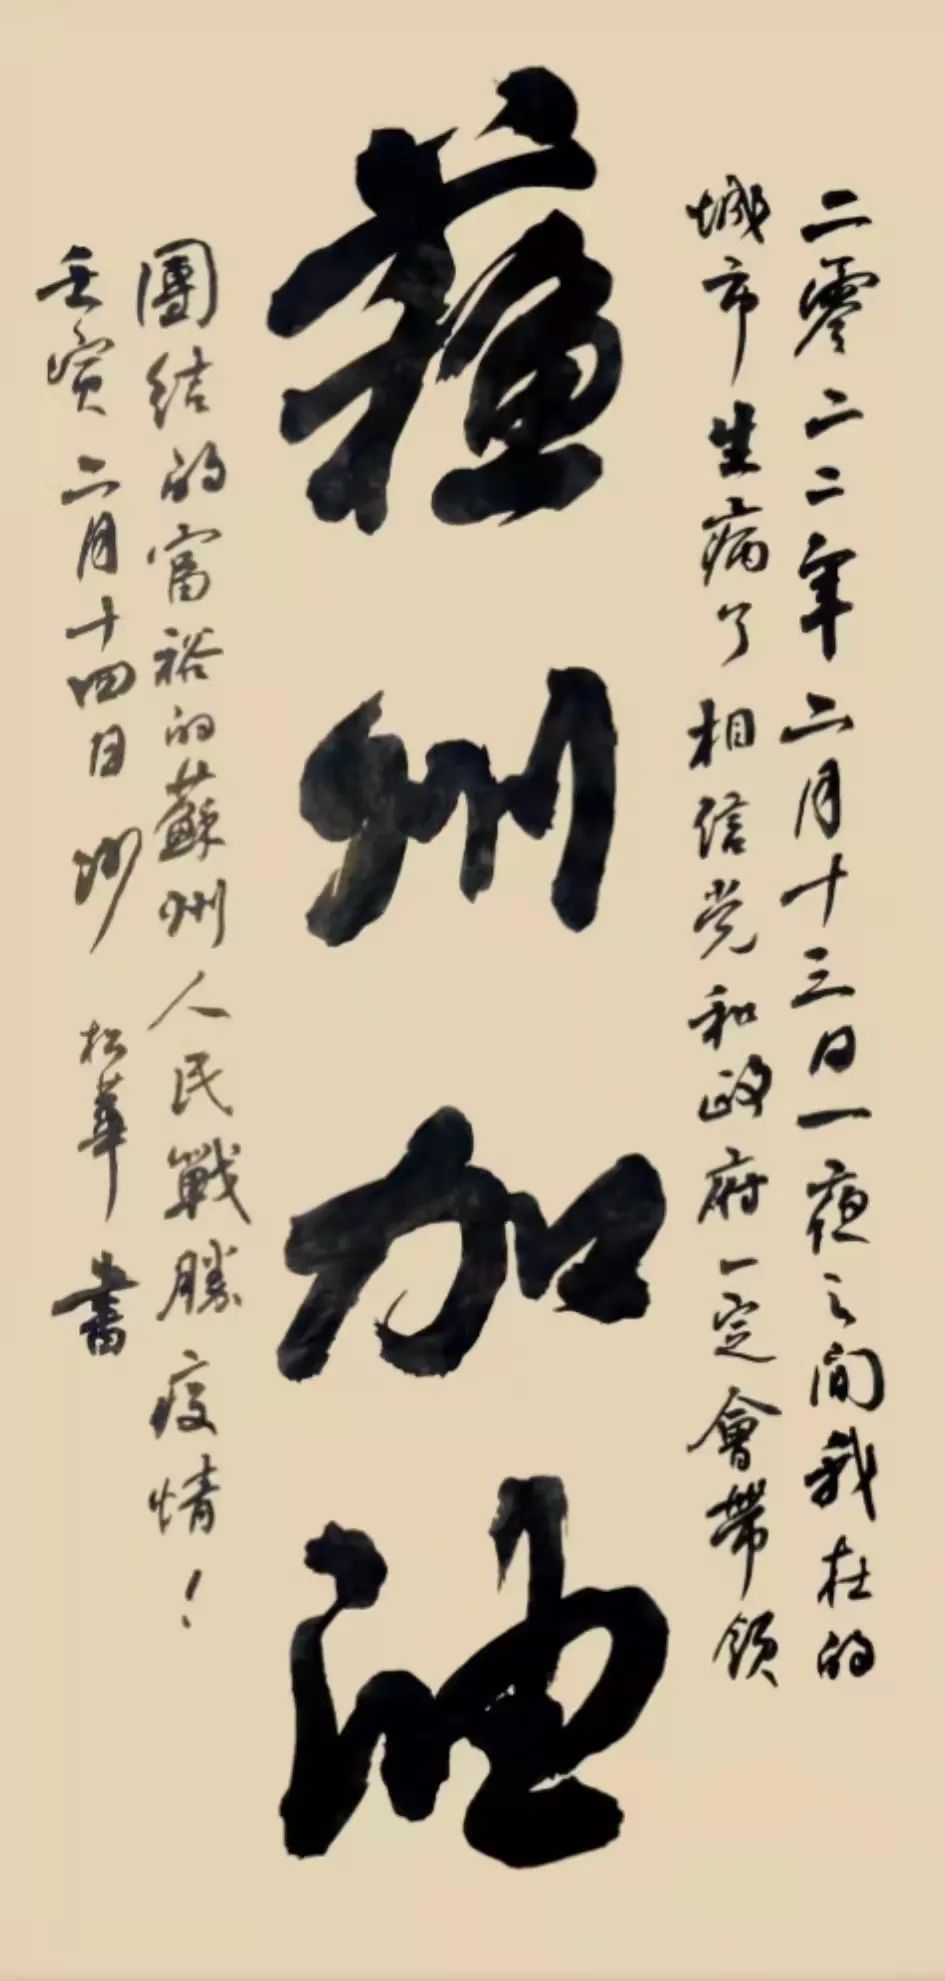 二零二二年二月十三日一夜之间我在的
城市生病了相信党和政府一定會帶领
蘇州加油
團结的富裕的蘇州人民戰勝疫情！
壬寅二月十四日 松華書